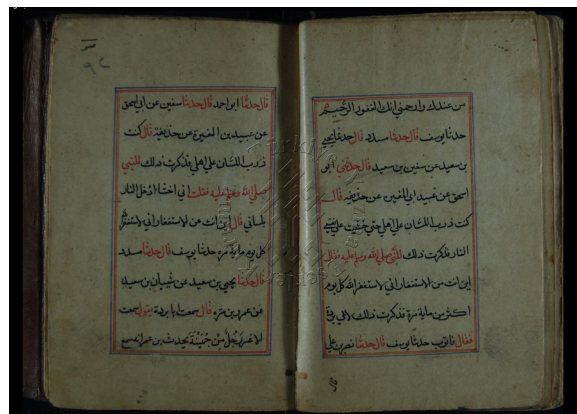 من عندك وارحمني انك الغفور الرحيم
حدثنا يوسف قال حدثنا مسدد قال حدثنا يحيى
بن سعيد عن سفين بن سعيد قال حدثني ابو
اسحق عن عبيد ابي المغيرة عن حذيفة قال
كنت ذرب اللسان على اهلي حتى خشيت على نفسي
النار فذكرت ذلك للنبي صلى الله وعليه فقال
اين انت من الاستغفار اني لاستغفر الله كل يوم
اكثر من ماية مرة فذكرت ذلك لابي بردة
فقال واتوب حدثنا يوسف قال حدثنا نصر بن علي
قال حدثنا ابو احمد قال حدثنا سفين عن ابي اسحق
عن عبيد بن المغيرة عن حذيفة قال كنت
ذرب اللسان على اهلي فذكرت ذلك للنبي
صلى الله عليه فقلت اني اخشا ادخل النار
بلساني قال اين انت عن الاستغفار اني لاستغفر
كل يوم ماية مرة حدثنا يوسف قال حدثنا مسدد
قال حدثنا يحيى بن سعيد عن بن سعيد
عن عمرو بن مرة قال سمعت ابا بردة يقول سمعت
الاغر رجل من جهينة يحدث بن عمر انه سمع